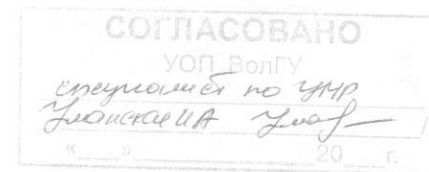 СОГЛАСОВАНО
УОП ВолГУ
специалист по УМР
Уманская ИА
«___»____________20___г.